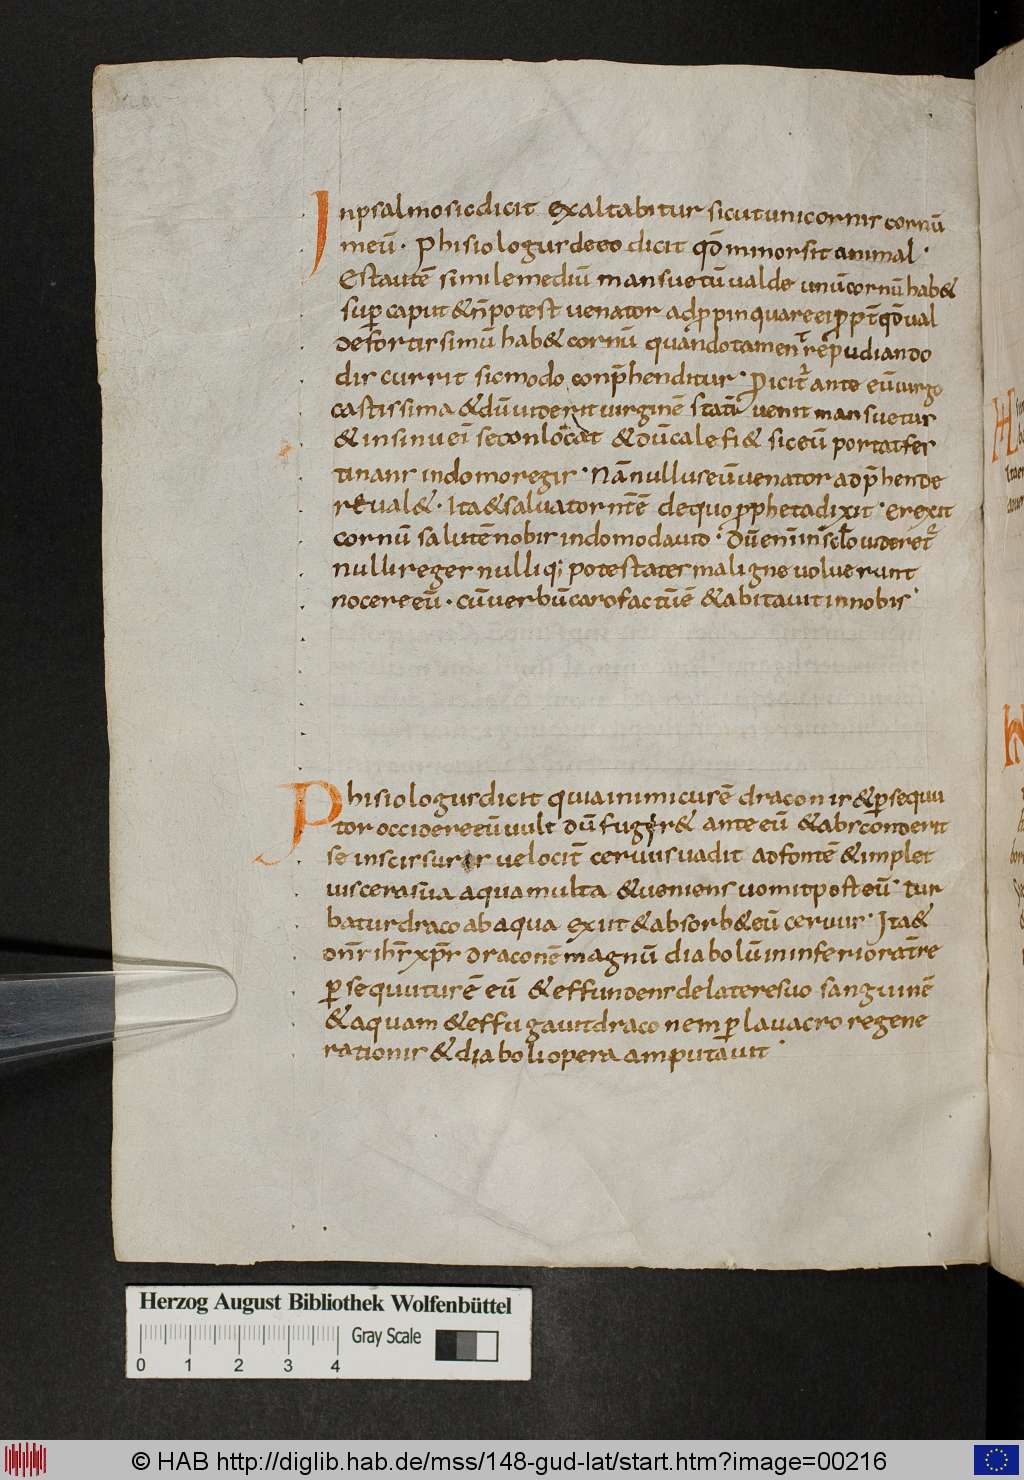 Inpsalmosicdicit exaltabitur sicutunicornis cornū
meū· Phisiologusdeeo dicit qđminorsit animal·
Estautē similemediū mansuetūualde unūcornūhab&
suꝑ caput &n̄potest uenator adpropinquareei ꝓpt̄qđual
defortissimū hab& cornū quandotamen repudiando
discurrit sicmodo conp̄henditur· Dicit̄ ante eūuirgo
castissima &dūuiderit uirginē statī uenit mansuetus
& insinueī seconlocat & dūcalefi& siceū portatfes
tinans indomoregis· Nānulluseūuenator adp̄hende
reual&· Ita&saluatornr̄ē dequopphetadixit· Erexit
cornū salutēnobis indomodauid· Dūenīinsclo uideret̄
nullireges nulliq; potestatesmaligneuoluerunt
nocereeū· cūuerbūcarofactūē &abitauitinnobis·
Phisiologusdicit quiainimicusē draconis&ꝑsequu
tor occidereeūuult dūfuger& anteeū &absconderit
se inscissuras uelocit̄ ceruusuadit adfontē &implet
uiscerasua aquamulta &ueniens uomitposteū· tur
baturdraco abaqua exiit&absorb&eū ceruus· Ita&
dn̄s ih̄sxp̄s draconēmagnū diabolūininferiorat̄re
ꝑsequuturē eū &effundensdelateresuo sanguinē
&aquam &effugauitdraconemꝑlauacroregene
rationis &diaboliopera amputauit·
Herzog August Bibliothek Wolfenbüttel
Gray Scale
0 1 2 3 4
© HAB http://diglib.hab.de/mss/148-gud-lat/start.htm?image=00216